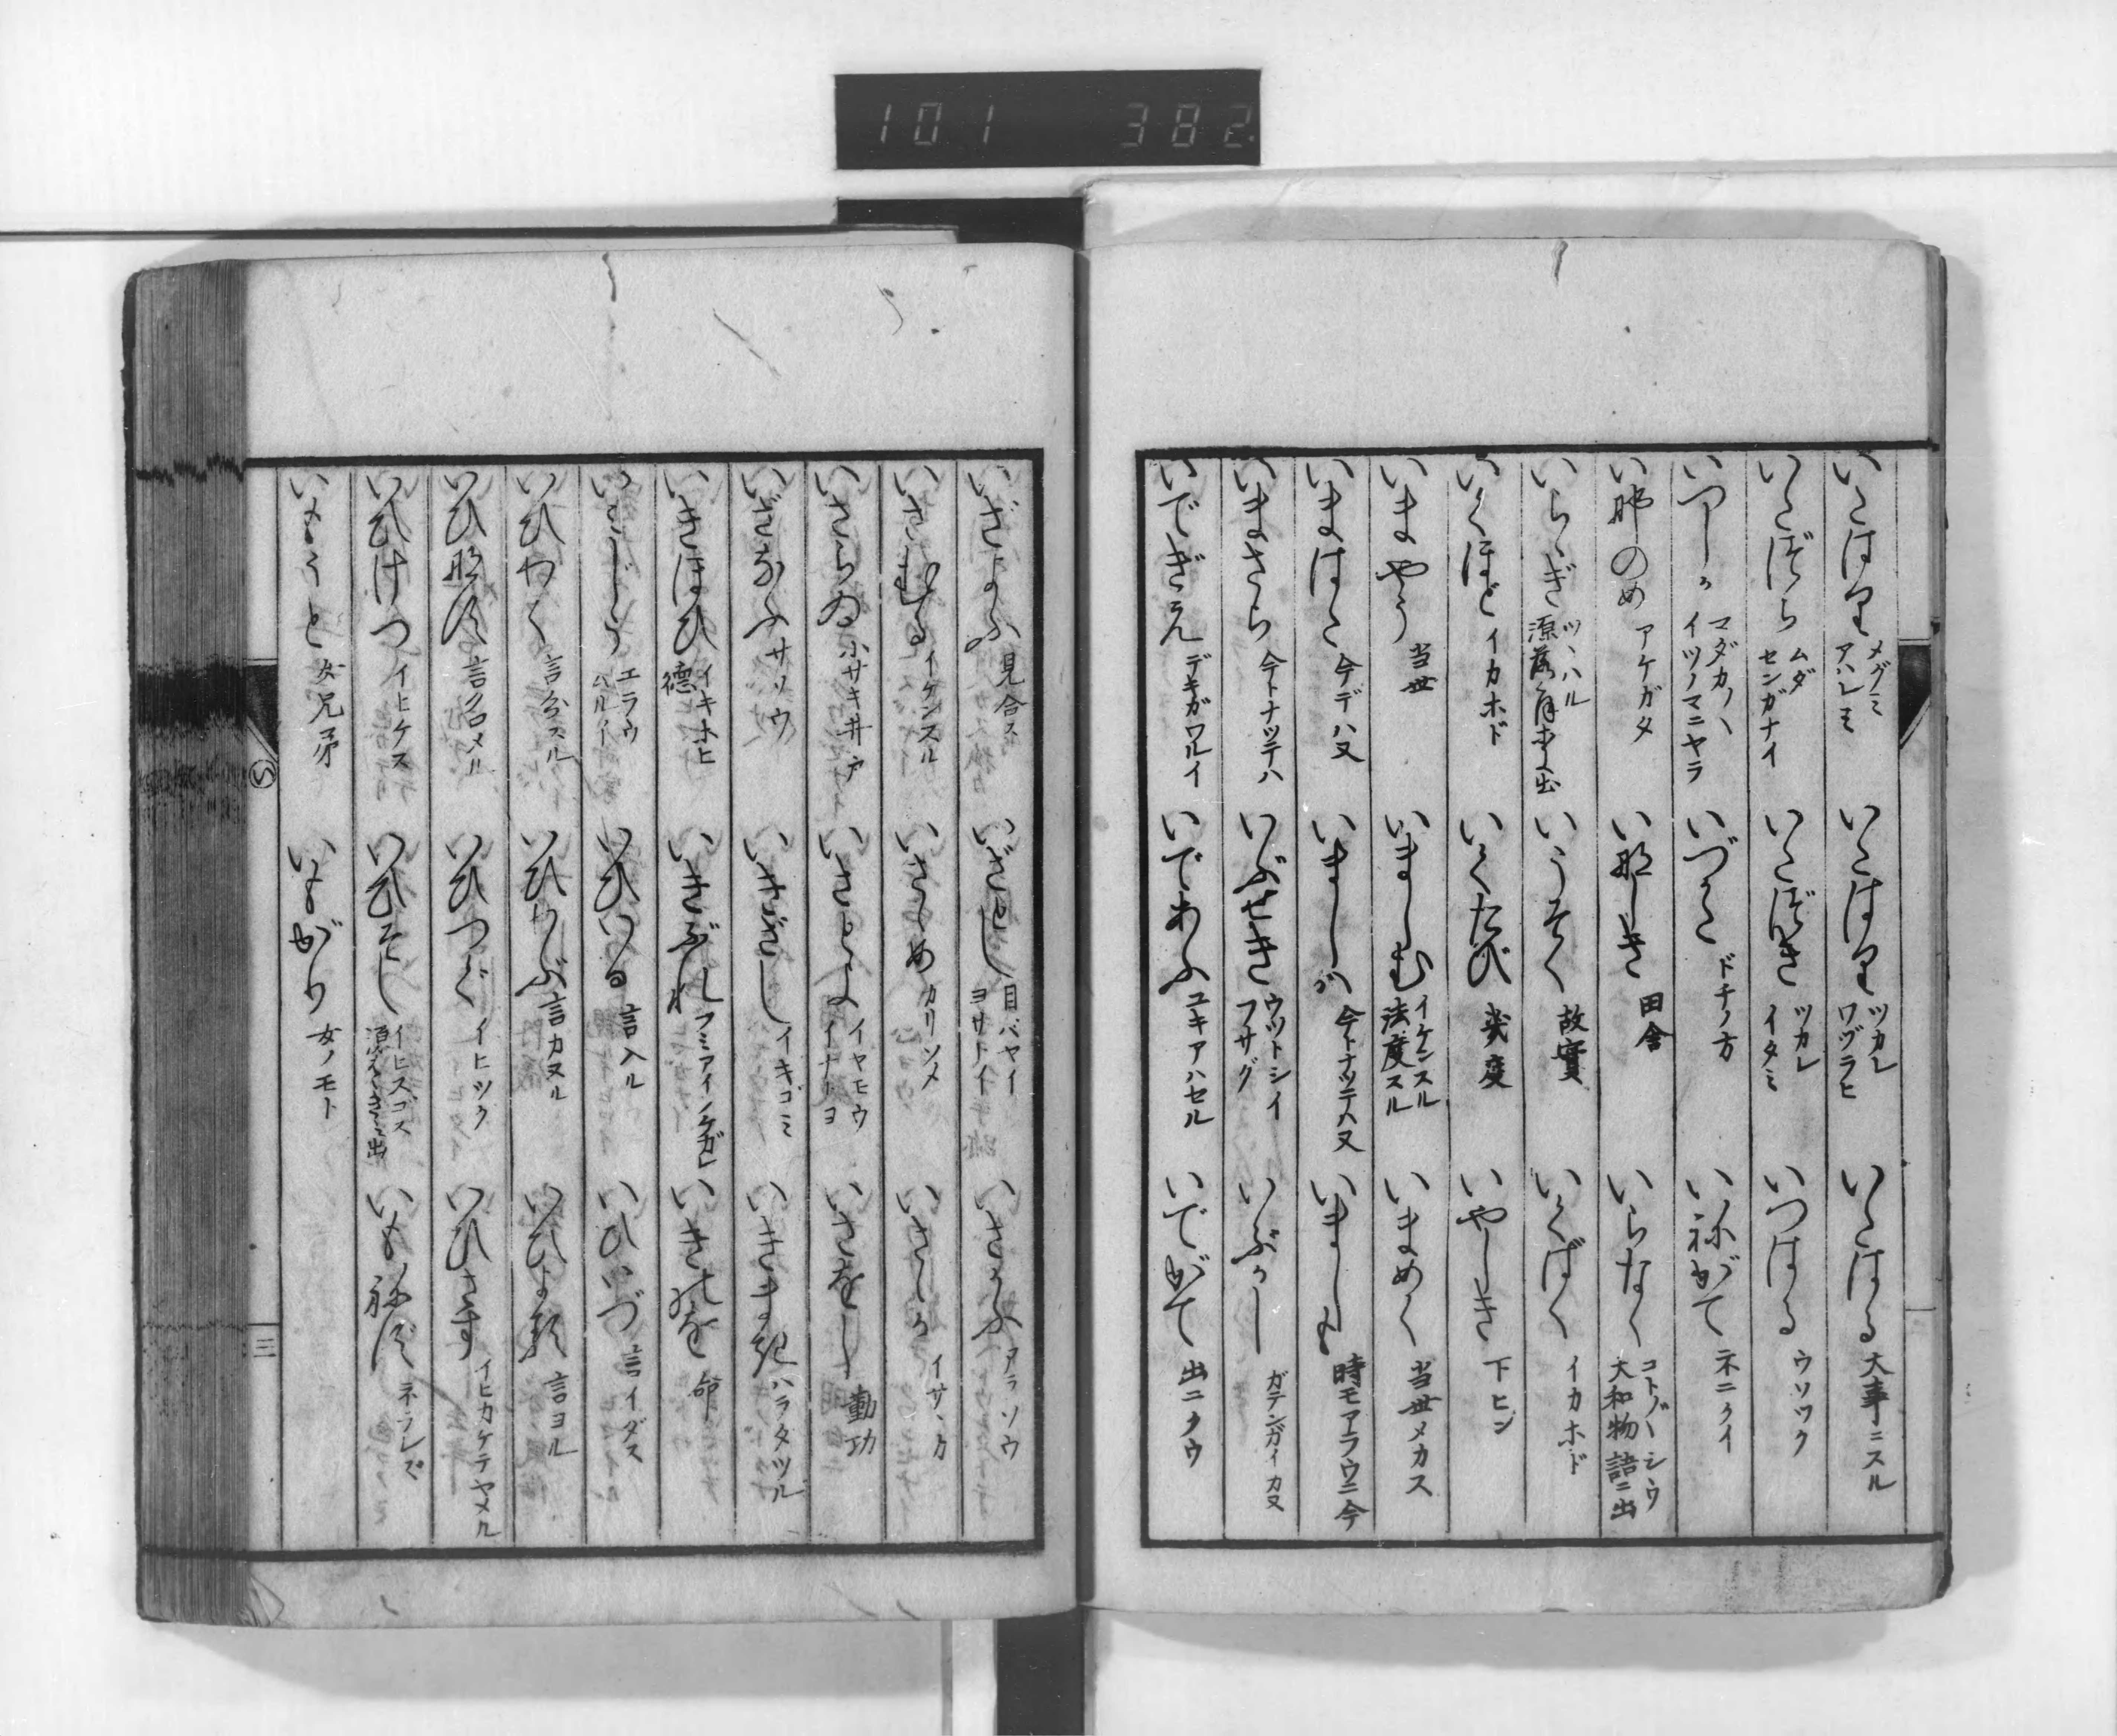 101 382
いたはり メグミ アハレミ
いたはり ツカレ ワヅラヒ
いたはる 大事ニスル
いたづら ムダ センガナイ
いたづき ツカレ イタミ
いつはる ウソツク
いつしか マダカノハ イツノマニヤラ
いづかた ドチノ方
いねがて ネニクイ
いなのめ アケガタ
いなしき 田舎
いらなく コトノハシウ 大和物語ニ出
いらゝぎ ツヽハル
いうそく 故實
いくばく イカホド
いくほど イカホド
いくたび 幾度
いやしき 下ヒン
いまやう 当世
いましむ イケンスル 法度スル
いまめく 当世メカス
いまはた 今デハ又
いましハ 今トナツテハ又
いましも 時モアラウニ今
いまさら 今トナツテハ
いぶせき ウツトシイ フサグ
いぶかし ガテンガイカヌ
いでぎえ デキガワルイ
いであふ ユキアハセル
いでがて 出ニクウ
いざよふ 見合ス
いざとし 目バヤイ ヨサトイ
いさかふ アラソウ
いさむる イケンスル
いさゝめ カリソメ
いさゝか イサヽカ
いさらゐ 小サキ井戸
いさとよ イヤモウ イナトヨ
いさをし 勤功
いざなふ サソウ
いきざし イキゴミ
いきまき ハラタツル
いきほひ イキホヒ 德
いきぶれ フミアイノケガレ
いきのを 命
いみじう エラウ ハルイ
いひいる 言入ル
いひいづ 言イダス
いひわく 言分スル
いひわぶ 言カヌル
いひよる 言ヨル
いひなす 言クロメル
いひつぐ イヒツク
いひさす イヒカケテヤメル
いひけつ イヒケス
いひそし イヒスゴス
いもねず ネラレズ
いもうと 女兄弟
いもがり 女ノモト
い
三